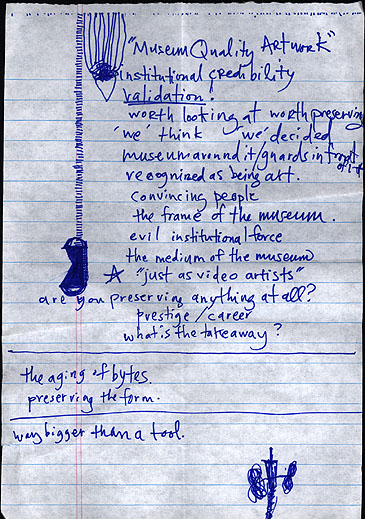 "Museum Quality Artwork"
institutional credibility
validation!
worth looking at worth preserving
'we' think 'we' decided
museum around it/guards in front of it
recognized as being art.
convincing people
the frame of the museum.
evil institutional force
the medium of the museum
"just as video artists"
are you preserving anything at all?
prestige/career
what's the takeaway?
the aging of bytes.
preserving the form.
way bigger than a tool.